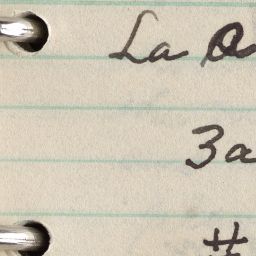 La Q
3a
#